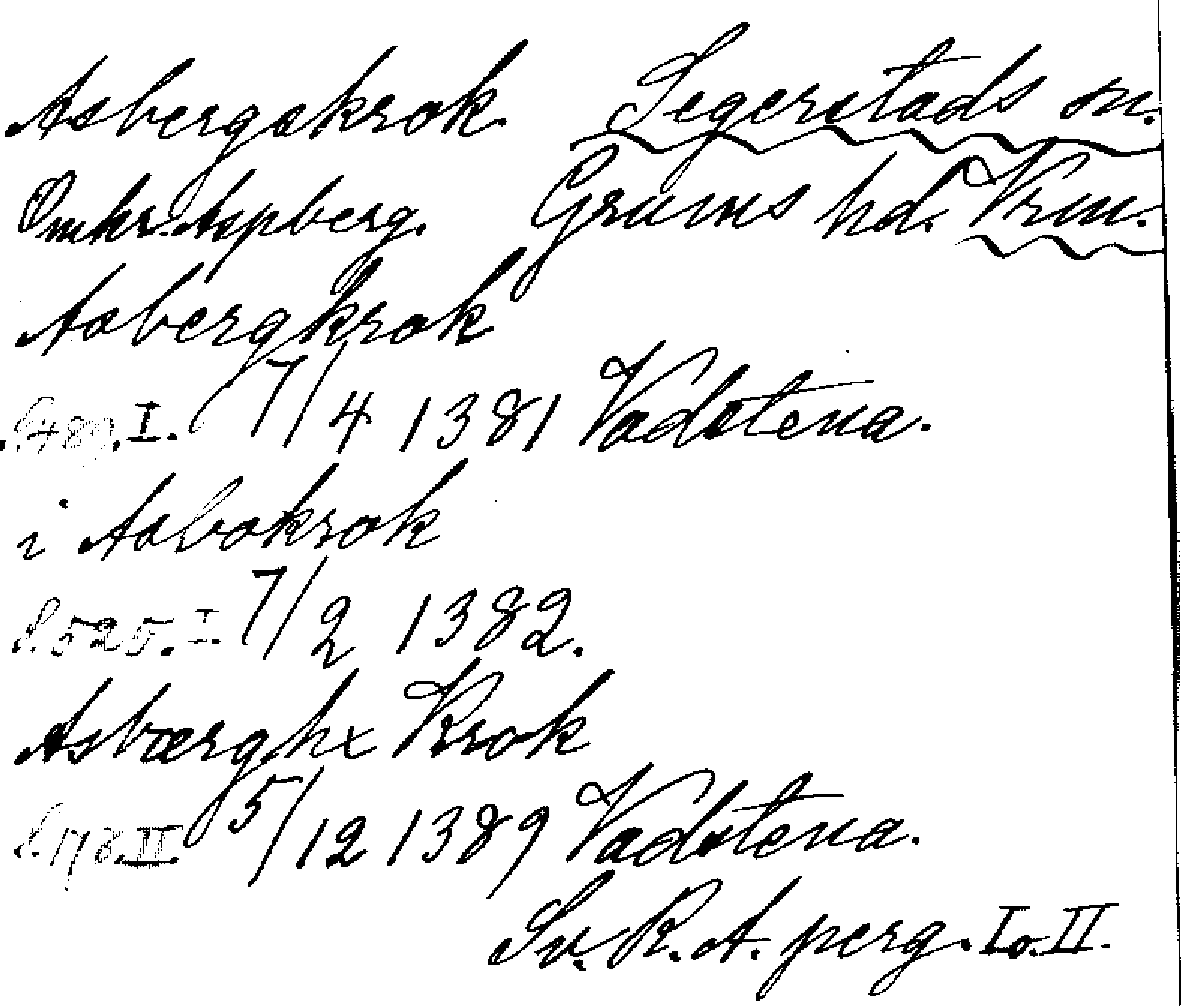 Asbergskrok. Segerstads sn.
Omkr. Aspberg. Grums hd. Vrm.
Asbergkrok
S. 489. I. 7/4 1381 Vadstena.
i Asbokrok
S. 525. I. 7/2 1382.
Asbærghx Krok
S. 178. II. 5/12 1389 Vadstena.
Sv. R. A. perg. I o. II.